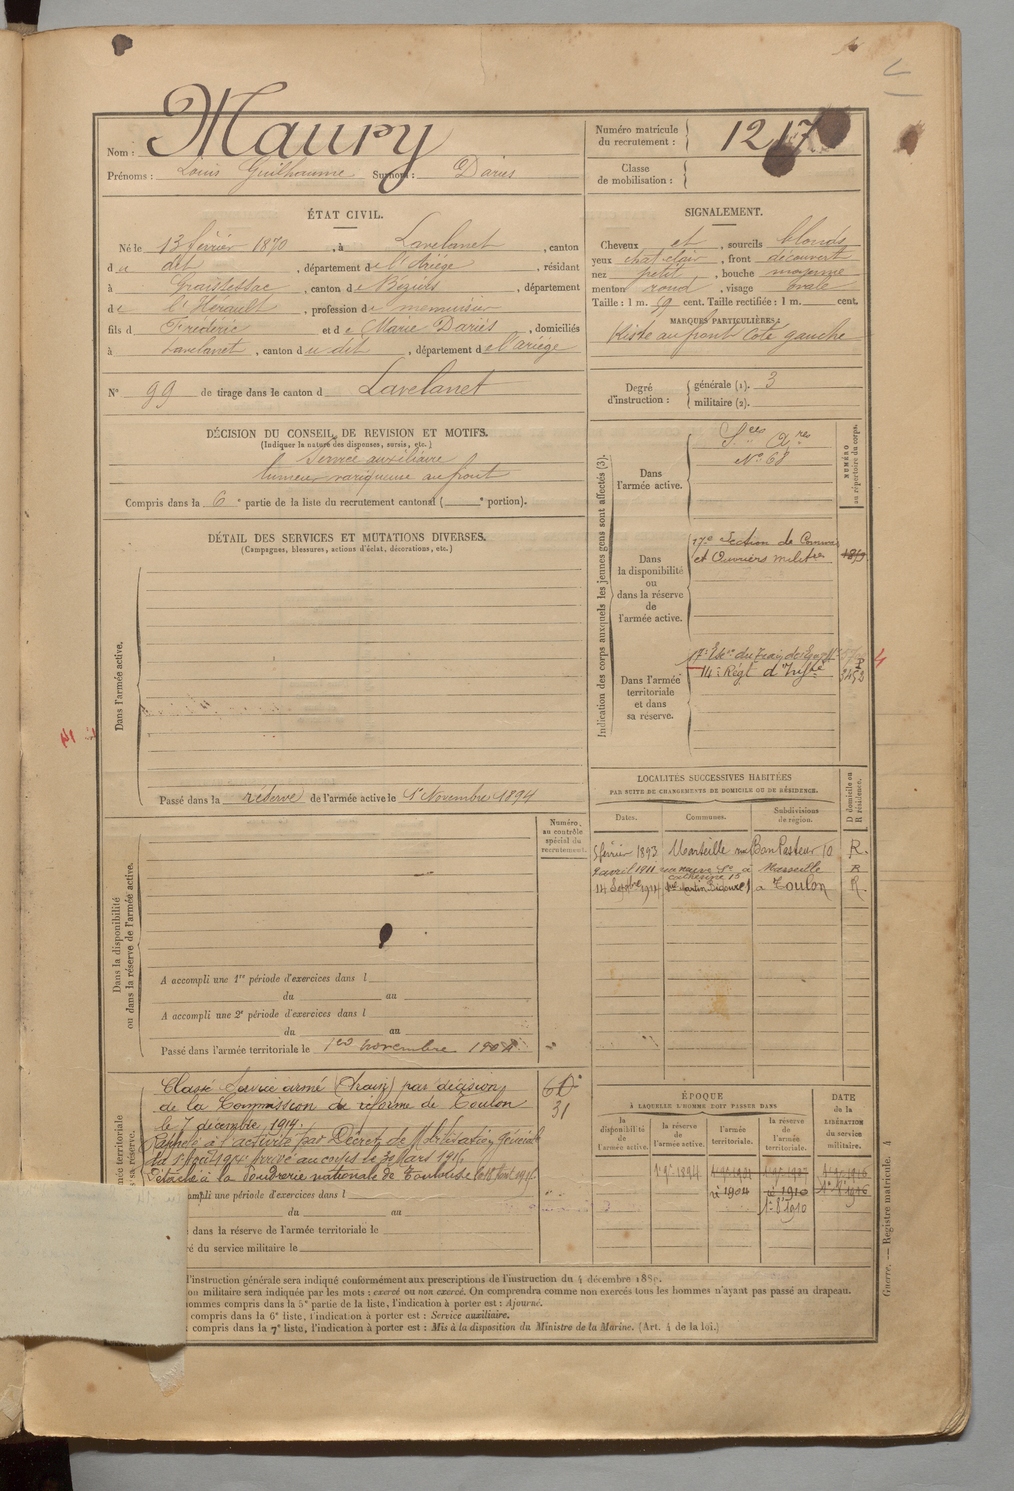 Nom : Maury
Numéro matricule du recrutement : 1217
Prénoms : Louis Guilhaume Surnom : Dariès
Classe de mobilisation :
ÉTAT CIVIL.
Né le 13 février 1870, à Lavelanet, canton
du dit, département de l'Ariège, résidant
à Graissessac, canton de Béziers, département
de l'Hérault, profession de menuisier
fils de Frédéric et de Marie Dariès, domiciliés
à Lavelanet, canton du dit, département de l'ariège
N° 99 de tirage dans le canton d Lavelanet
DÉCISION DU CONSEIL DE REVISION ET MOTIFS.
(Indiquer la nature des dispenses, sursis, etc.)
Service auxiliaire
tumeur variqueuse au front
Compris dans la 6e partie de la liste du recrutement cantonal ( e portion).
SIGNALEMENT.
Cheveux et, sourcils blonds
yeux chat clair, front découvert
nez petit, bouche moyenne
menton rond, visage ovale
Taille : 1 m. 59 cent. Taille rectifiée : 1 m. cent.
MARQUES PARTICULIÈRES :
Kiste au front cote gauche
Degré d'instruction : générale (1). 3
militaire (2).
DÉTAIL DES SERVICES ET MUTATIONS DIVERSES.
(Campagnes, blessures, actions d'éclat, décorations, etc.)
Dans l'armée active.
Passé dans la réserve de l'armée active le 1er Novembre 1894
Indication des corps auxquels les jeunes gens sont affectés (3).
NUMÉRO au répertoire du corps.
Dans l'armée active.
Sces Xres
N° 68
Dans la disponibilité ou dans la réserve de l'armée active.
17e Section de Commis
et Ouvriers militres
Dans l'armée territoriale et dans sa réserve.
17e Esc. du Train des Eq.
14e Régt d'Infie
3452
LOCALITÉS SUCCESSIVES HABITÉES
PAR SUITE DE CHANGEMENTS DE DOMICILE OU DE RÉSIDENCE.
Dates. Communes. Subdivisions de région. D domicile ou R résidence.
5 février 1893 Marseille rue Bon Pasteur 10 R.
9 avril 1911 rue neuve Ste Catherine 15 à Marseille R
14 Septbre 1914 à Toulon R.
Numéro au contrôle spécial du recrutement.
Dans la disponibilité ou dans la réserve de l'armée active.
A accompli une 1re période d'exercices dans l
du au
A accompli une 2e période d'exercices dans l
du au
Passé dans l'armée territoriale le 1er novembre 1904
Classé Service armé (Train) par décision
de la Commission de réforme de Toulon
le 7 décembre 1914.
Rappelé à l'activité par Décret de Mobilisation Générale
du 1er août 1914 Arrivé au corps le 30 Mars 1916
Détaché à la Poudrerie nationale de Toulouse le 18 Aout 1916
31
mpli une période d'exercices dans l
du au
dans la réserve de l'armée territoriale le
é du service militaire le
ÉPOQUE
À LAQUELLE L'HOMME DOIT PASSER DANS
la disponibilité de l'armée active. la réserve de l'armée active. l'armée territoriale. la réserve de l'armée territoriale.
DATE de la LIBÉRATION du service militaire.
1 9bre 1894
1904 1910 1916
l'instruction générale sera indiqué conformément aux prescriptions de l'instruction du 4 décembre 1889.
on militaire sera indiquée par les mots : exercé ou non exercé. On comprendra comme non exercés tous les hommes n'ayant pas passé au drapeau.
ommes compris dans la 5e partie de la liste, l'indication à porter est : Ajourné.
compris dans la 6e liste, l'indication à porter est : Service auxiliaire.
compris dans la 7e liste, l'indication à porter est : Mis à la disposition du Ministre de la Marine. (Art. 4 de la loi.)
Guerre. — Registre matricule. 4